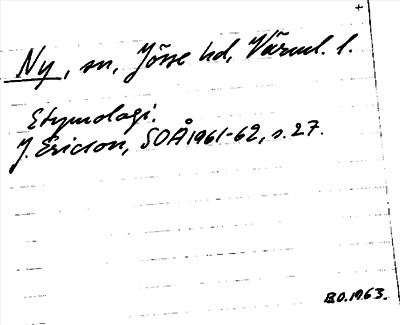 +
Ny, sn, Jösse hd, Värml. l.
Etymologi.
J. Ericson, SOÅ 1961-62, s. 27.
B.O. 1963.